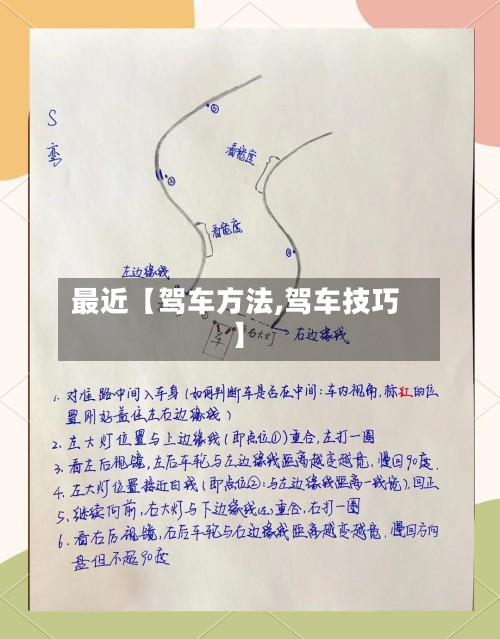 S
弯
②
看宽度
③
看宽度
①
左边缘线
最近【驾车方法,驾车技巧
】
车
右大灯
右边缘线
1. 对准路中间入车身(如何判断车是否在中间:车内视角,标红的位
置刚好盖住左右边缘线)
2. 左大灯位置与上边缘线(即点位①)重合,左打一圈
3. 看左后视镜,左后车轮与左边缘线距离越变越宽,慢回90度.
4. 左大灯位置接近白线(即点位②:与左边缘线距离一线宽),回正
5. 继续向前,右大灯与下边缘线 重合,右打一圈
6. 看右后视镜,右后车轮与右边缘线距离越变越宽,慢回方向
盘但不超90度